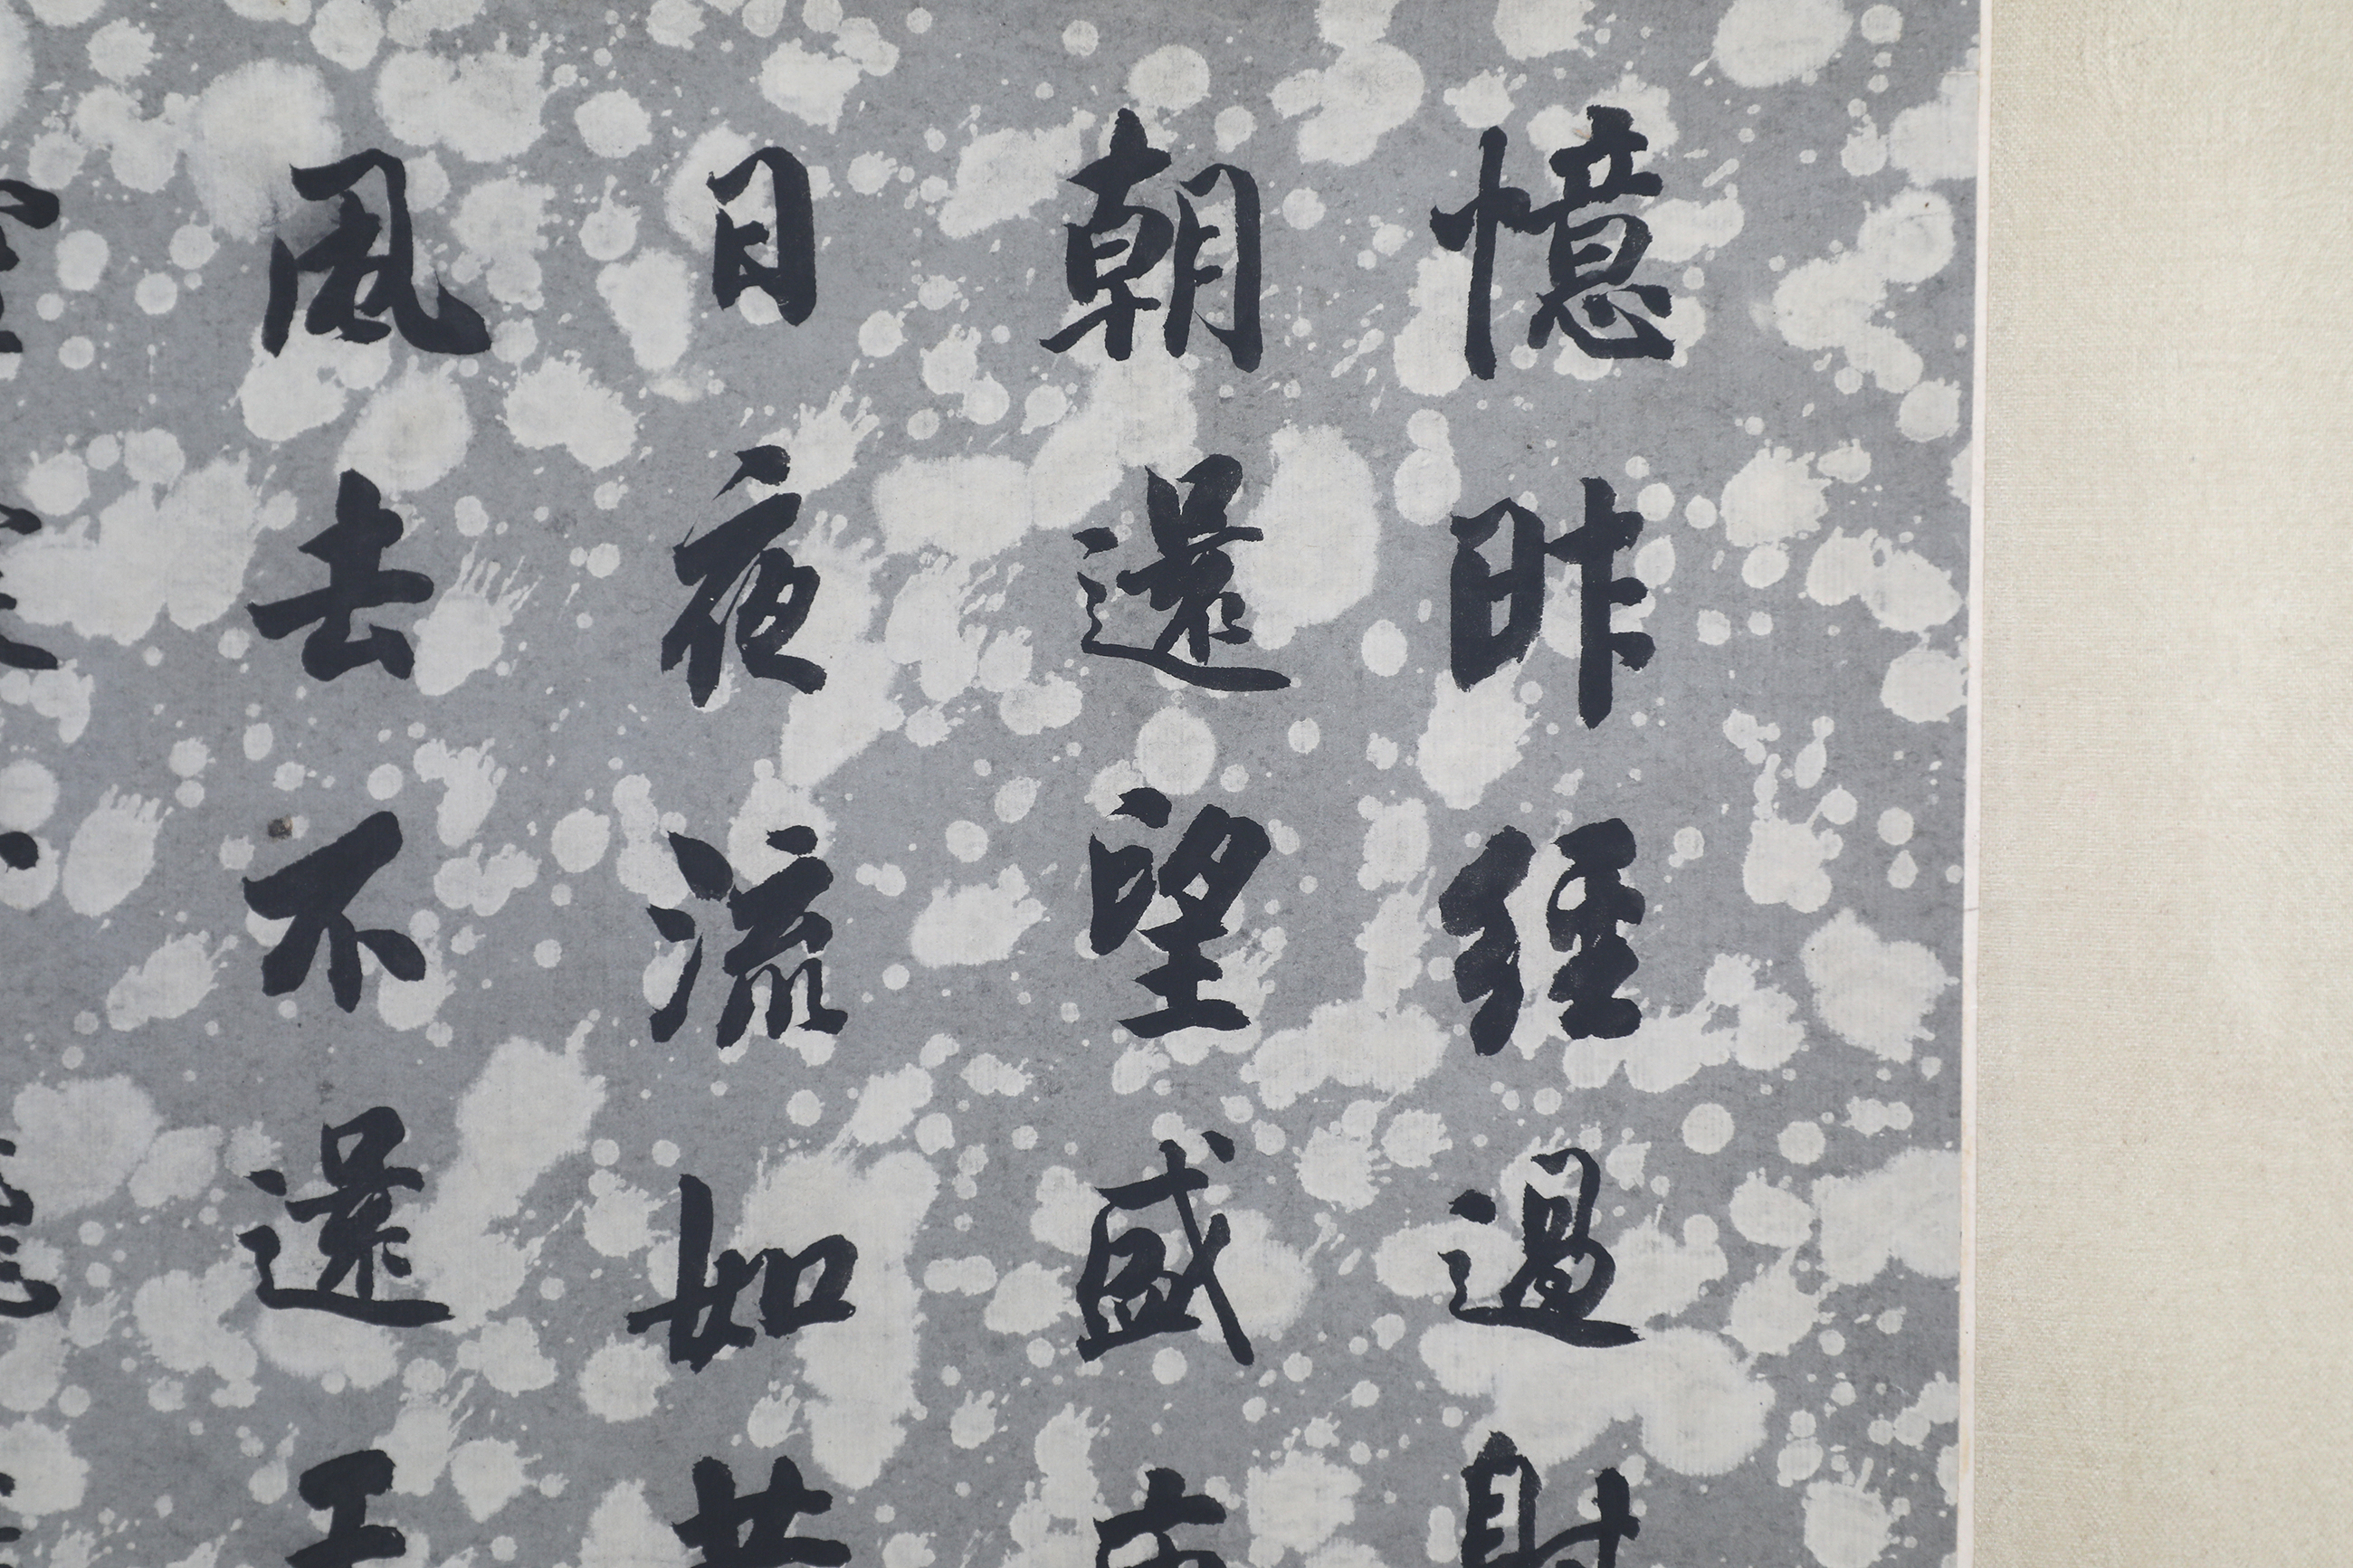 憶昨經過射
朝還望盛
日夜流如
風去不還